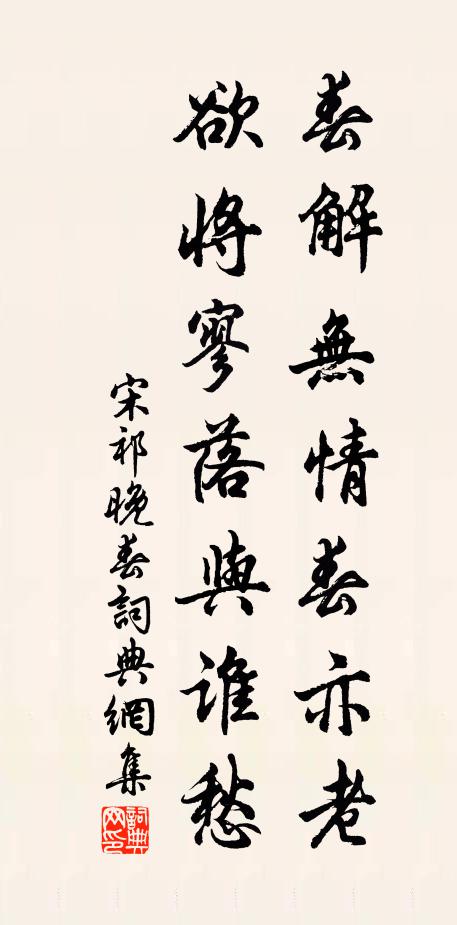 春解無情春亦老
欲將寥落與誰愁
宋祁晚春詞典網集
詞典網印